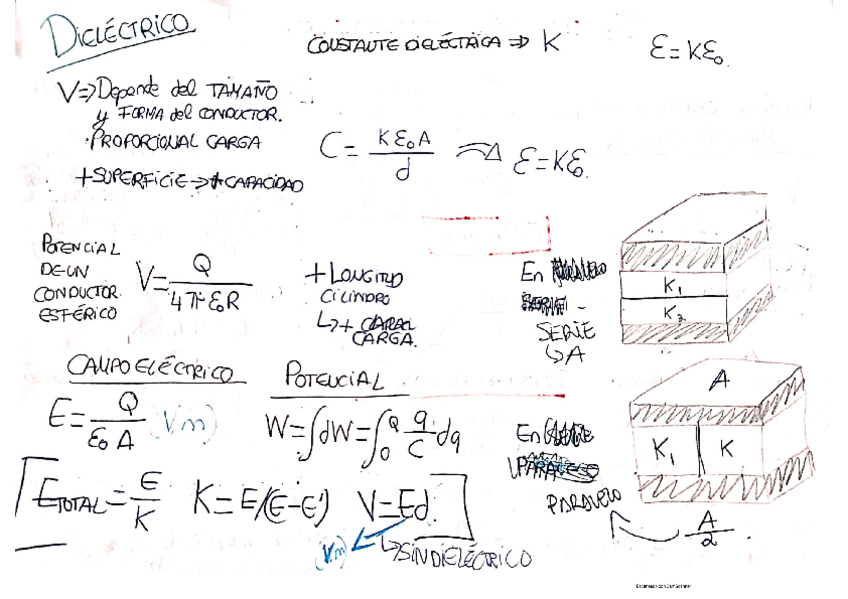 DIELÉCTRICO
CONSTANTE DIELÉCTRICA ⇒ K
Ɛ=KƐ₀.
V⇒Depende del TAMAÑO
y FORMA del CONDUCTOR.
·PROPORCIONAL CARGA
+SUPERFICIE→+CAPACIDAD
C = K Ɛ₀ A / d
Ɛ=KƐ₀.
POTENCIAL
DE UN
CONDUCTOR
ESFÉRICO
V= Q / 4πƐ₀R
+LONGITUD
CILINDRO
↳+
CARGA.
En
SERIE
↳A
K₁
K₂
CAMPO ELÉCTRICO
E= Q / Ɛ₀ A (V/m)
POTENCIAL
W=∫dW=∫₀^Q q/C dq
En
PARALELO
A/2.
A
K₁ K
E TOTAL = E/K
K=E/(E-E')
V=Ed.
(V/m)
↳SIN DIELÉCTRICO
Escaneado con CamScanner